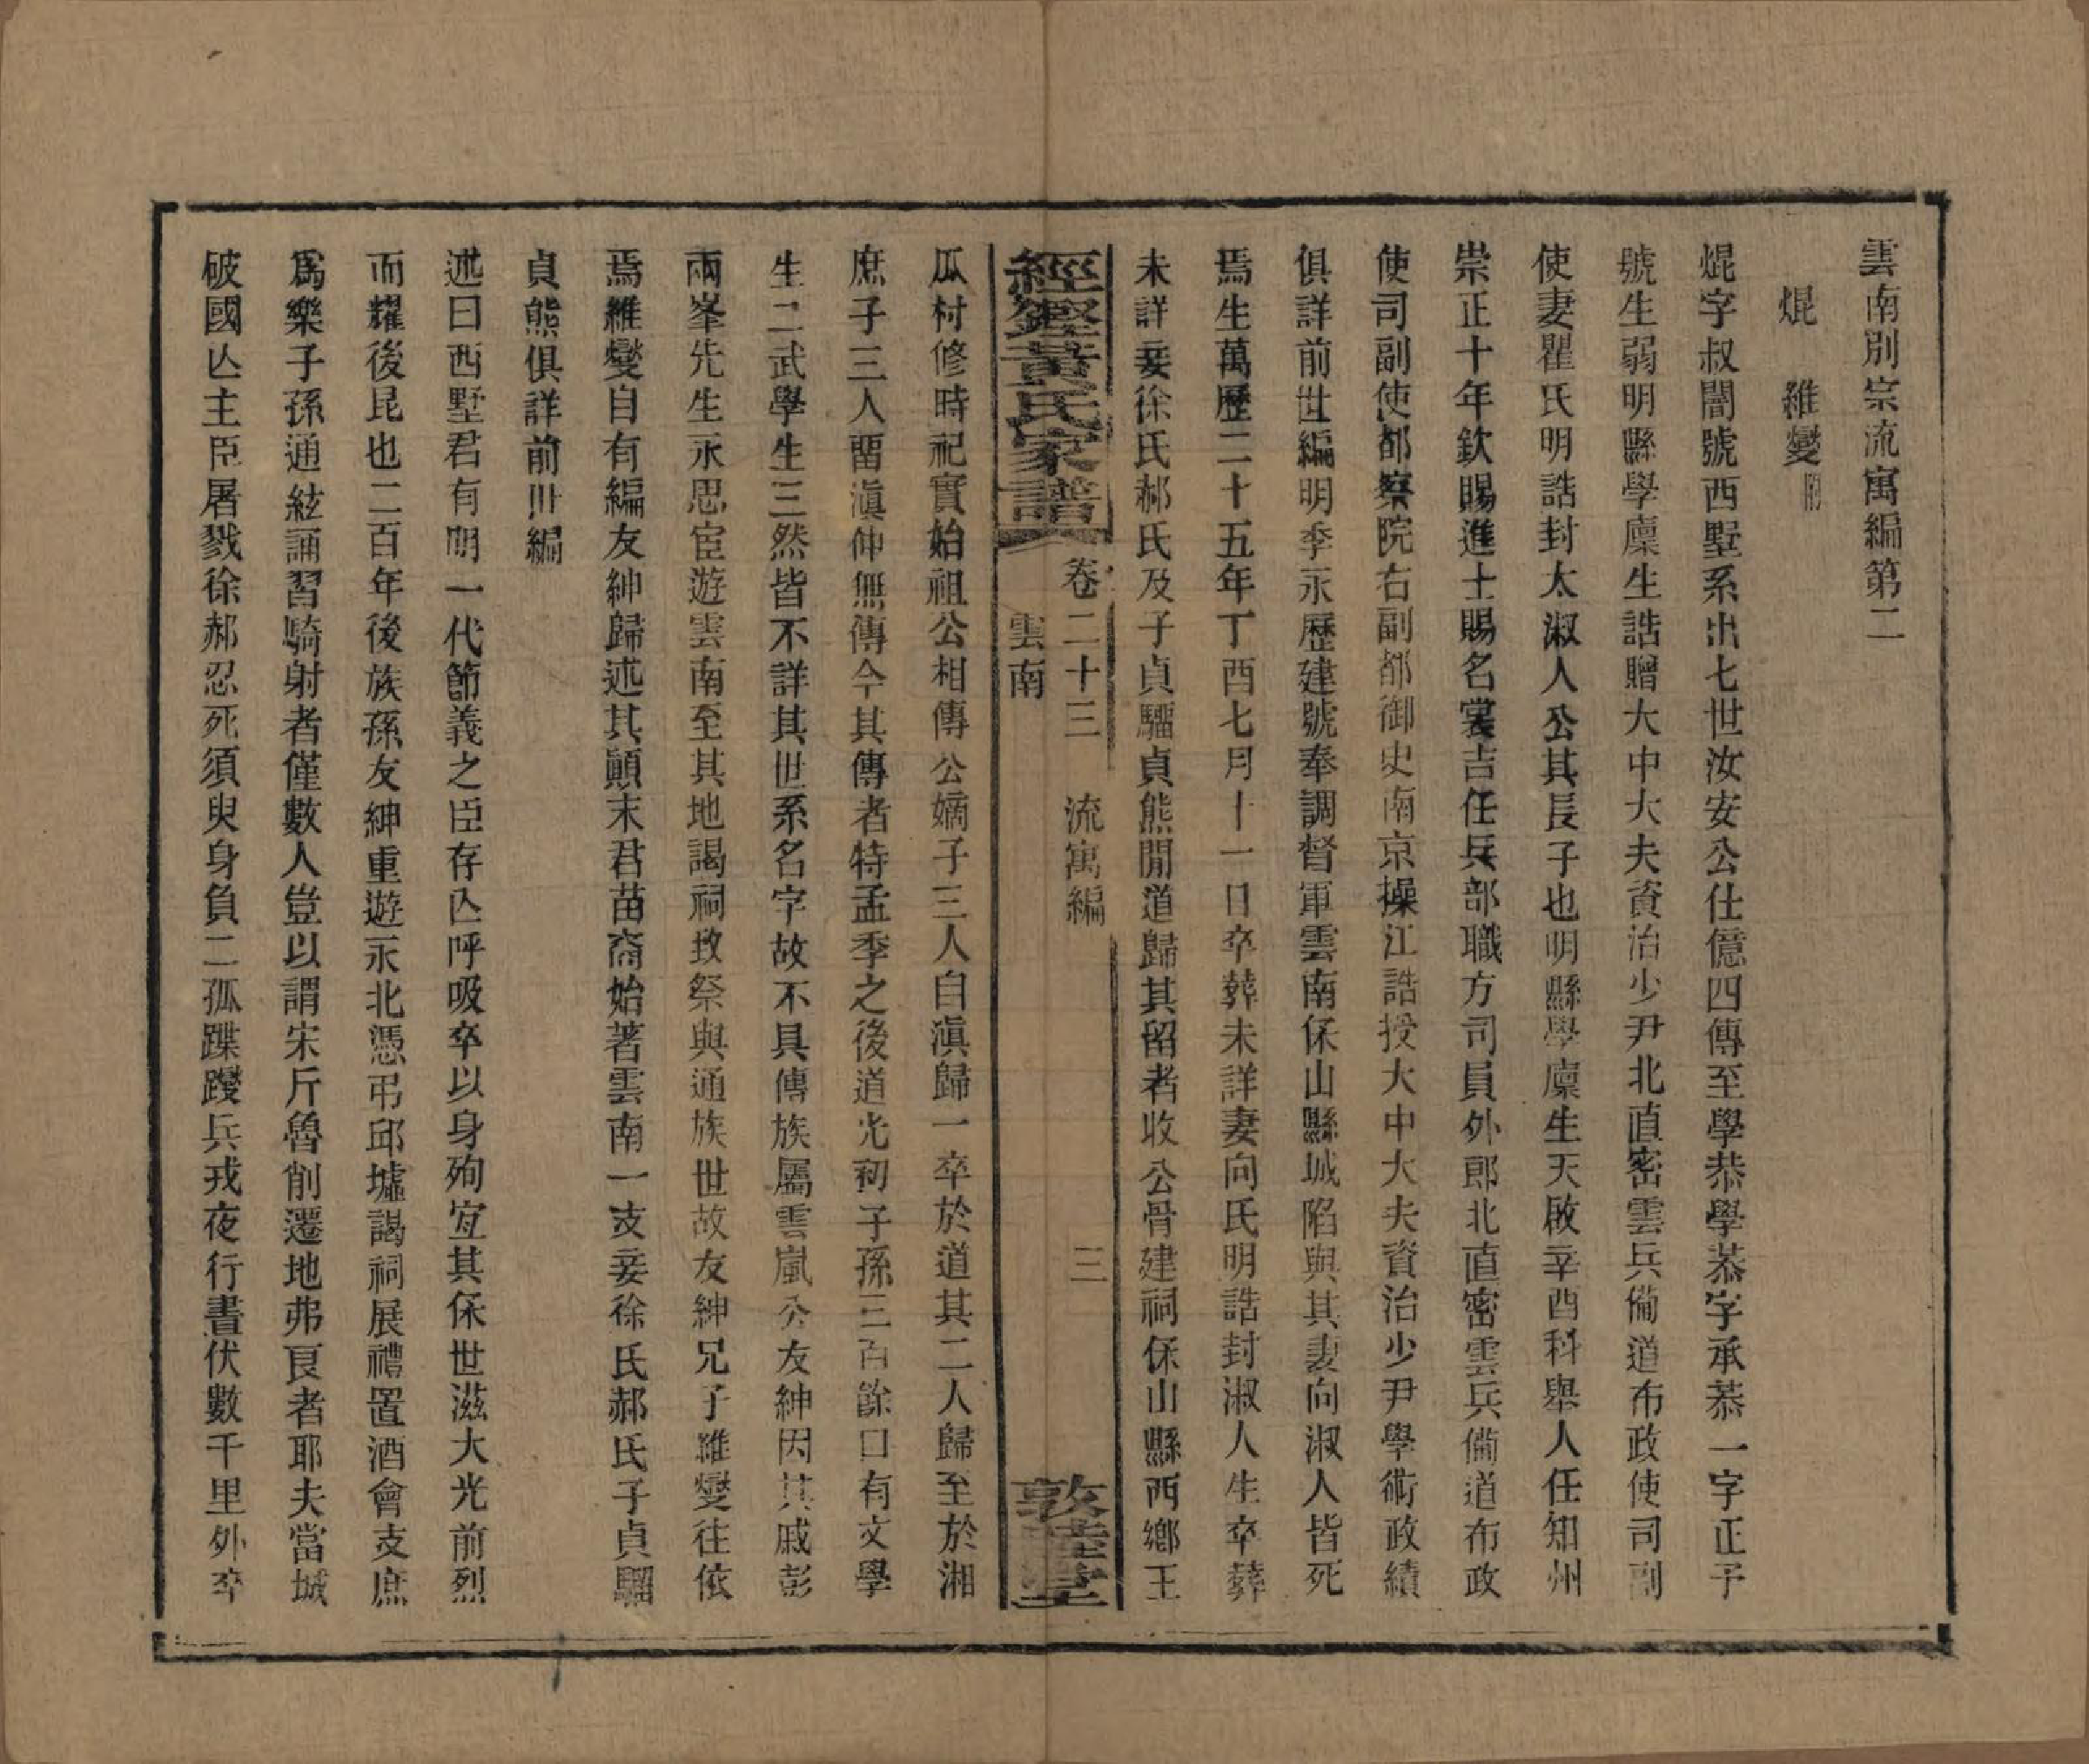 雲南別宗流寓編第二
焜　維燮附
焜字叔闇號西墅系出七世汝安公仕億四傳至學恭學恭字承恭一字正予
號生弱明縣學廩生誥贈大中大夫資治少尹北直密雲兵僃道布政使司副
使妻瞿氏明誥封太淑人公其長子也明縣學廩生天啟辛酉科舉人任知州
崇正十年欽賜進士賜名裳吉任兵部職方司員外郎北直密雲兵僃道布政
使司副使都察院右副都御史南京操江誥授大中大夫資治少尹學術政績
俱詳前世編明季永歷建號奉調督軍雲南保山縣城陷與其妻向淑人皆死
焉生萬歷二十五年丁酉七月十一日卒葬未詳妻向氏明誥封淑人生卒葬
未詳妾徐氏郝氏及子貞驑貞熊閒道歸其留者收公骨建祠保山縣西鄉王
經鏗黃氏家譜
卷二十三　流寓編　三
雲南
敦睦堂
瓜村修時祀實始祖公相傳公嫡子三人自滇歸一卒於道其二人歸至於湘
庶子三人畱滇仲無傳今其傳者特孟季之後道光初子孫三百餘口有文學
生二武學生三然皆不詳其世系名字故不具傳族屬雲嵐公友紳因其戚彭
兩峯先生永思宦遊雲南至其地謁祠致祭與通族世故友紳兄子維燮往依
焉維燮自有編友紳歸述其顚末君苗裔始著雲南一支妾徐氏郝氏子貞驑
貞熊俱詳前世編
述曰西墅君有明一代節義之臣存亾呼吸卒以身殉宐其保世滋大光前烈
而耀後昆也二百年後族孫友紳重遊永北憑弔邱墟謁祠展禮置酒會支庶
爲樂子孫通絃誦習騎射者僅數人豈以謂宋斤魯削遷地弗良者耶夫當城
破國亾主臣屠戮徐郝忍死須臾身負二孤蹀躞兵戎夜行晝伏數千里外卒